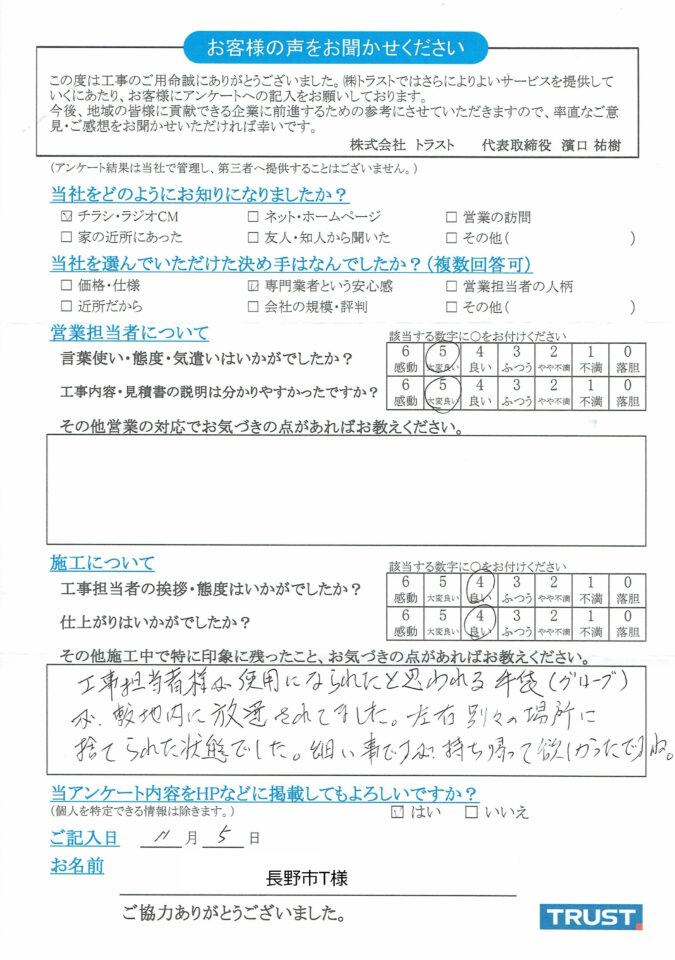 お客様の声をお聞かせください
この度は工事のご用命誠にありがとうございました。㈱トラストではさらによりよいサービスを提供して
いくにあたり、お客様にアンケートへの記入をお願いしております。
今後、地域の皆様に貢献できる企業に前進するための参考にさせていただきますので、率直なご意
見・ご感想をお聞かせいただければ幸いです。
株式会社 トラスト 代表取締役 濱口 祐樹
(アンケート結果は当社で管理し、第三者へ提供することはございません。)
当社をどのようにお知りになりましたか？
☑ チラシ・ラジオCM □ ネット・ホームページ □ 営業の訪問
□ 家の近所にあった □ 友人・知人から聞いた □ その他( )
当社を選んでいただけた決め手はなんでしたか？(複数回答可)
□ 価格・仕様 ☑ 専門業者という安心感 □ 営業担当者の人柄
□ 近所だから □ 会社の規模・評判 □ その他( )
営業担当者について 該当する数字に○をお付けください
言葉使い・態度・気遣いはいかがでしたか？ 6 5 4 3 2 1 0
感動 大変良い 良い ふつう やや不満 不満 落胆
工事内容・見積書の説明は分かりやすかったですか？ 6 5 4 3 2 1 0
感動 大変良い 良い ふつう やや不満 不満 落胆
その他営業の対応でお気づきの点があればお教えください。
施工について 該当する数字に○をお付けください
工事担当者の挨拶・態度はいかがでしたか？ 6 5 4 3 2 1 0
感動 大変良い 良い ふつう やや不満 不満 落胆
仕上がりはいかがでしたか？ 6 5 4 3 2 1 0
感動 大変良い 良い ふつう やや不満 不満 落胆
その他施工中で特に印象に残ったこと、お気づきの点があればお教えください。
工事担当者様が使用になられたと思われる手袋(グローブ)
が、敷地内に放置されてました。左右別々の場所に
捨てられた状態でした。細い事ですが持ち帰って欲しかったですね。
当アンケート内容をHPなどに掲載してもよろしいですか？
(個人を特定できる情報は除きます。) ☑ はい □ いいえ
ご記入日 11 月 5 日
お名前
長野市T様
ご協力ありがとうございました。
TRUST